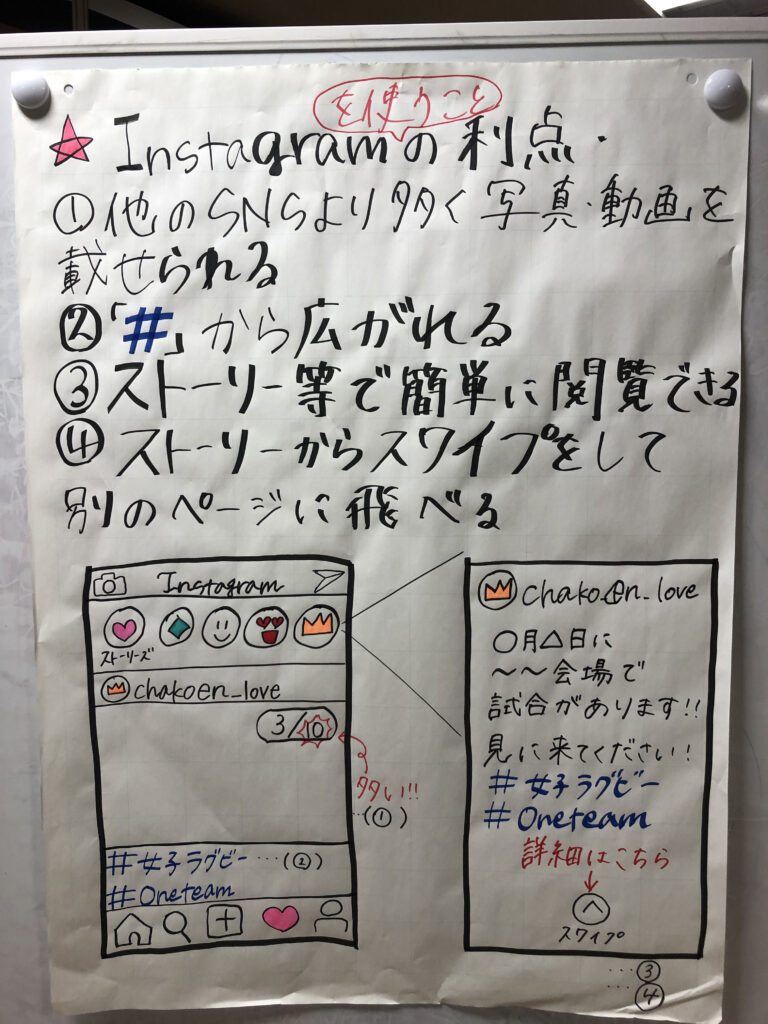 を使うこと
☆Instagramの利点・
①他のSNSより多く写真・動画を
載せられる
②「#」から広がれる
③ストーリー等で簡単に閲覧できる
④ストーリーからスワイプをして
別のページに飛べる
Instagram
ストーリーズ
chakoen_love
3/10
多い!!
…(①)
#女子ラグビー…(②)
#Oneteam
chakoen_love
○月△日に
~~会場で
試合があります!!
見に来てください!
#女子ラグビー
#Oneteam
詳細はこちら
↓
スワイプ
…③
…④